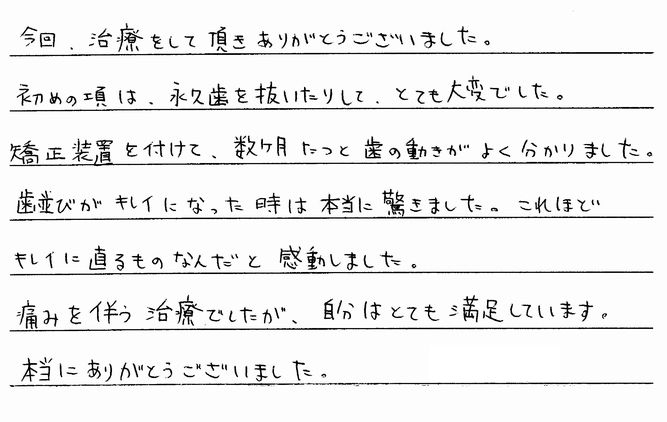 今回、治療をして頂きありがとうございました。
初めの項は、永久歯を抜いたりして、とても大変でした。
矯正装置を付けて、数ケ月たつと歯の動きがよく分かりました。
歯並びがキレイになった時は本当に驚きました。これほど
キレイに直るものなんだと感動しました。
痛みを伴う治療でしたが、自分はとても満足しています。
本当にありがとうございました。